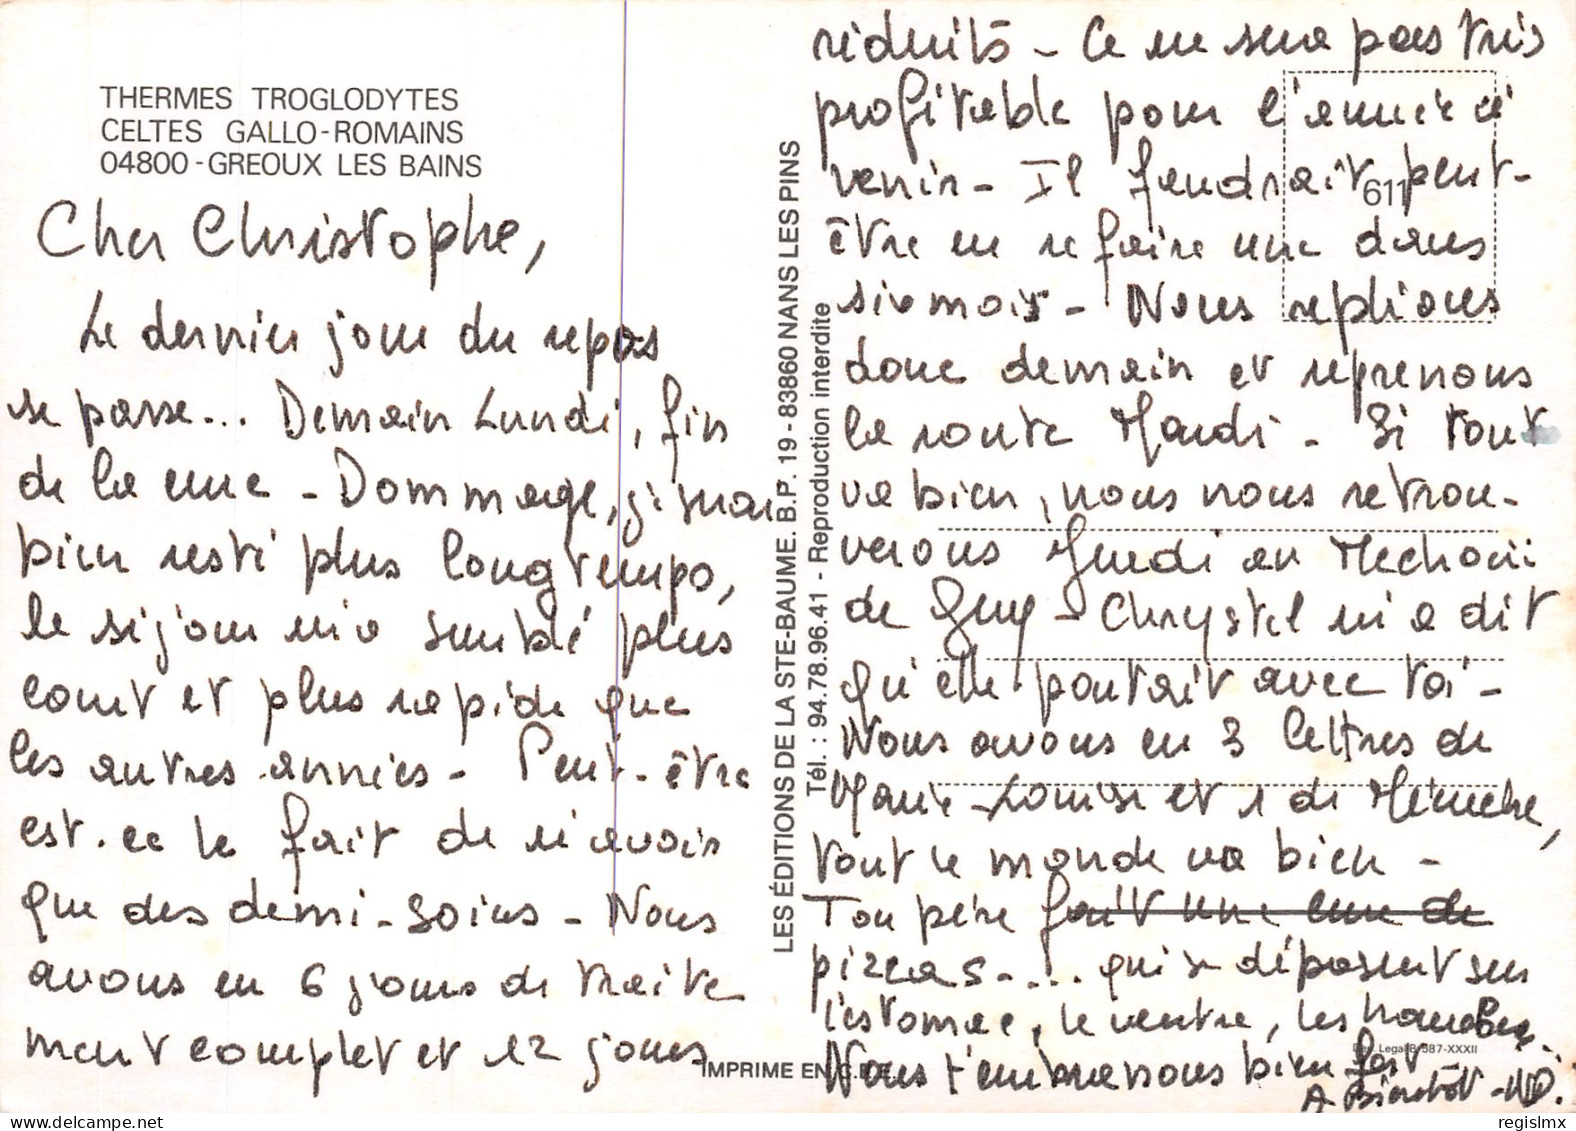 THERMES TROGLODYTES
CELTES GALLO-ROMAINS
04800 - GREOUX LES BAINS
Cher Christophe,
Le dernier jour du repos
se passe... Demain Lundi, fin
de la cure - Dommage, j'serai
bien resté plus longtemps,
le séjour m'a semblé plus
court et plus rapide que
les autres années - Peut-être
est-ce le fait de n'avoir
que des demi-soins - Nous
avons eu 6 jours de traite
ment complet et 12 jours
réduits - Ce ne sera pas très
profitable pour l'année à
venir - Il faudrait peut-
être en refaire une dans
six mois - Nous replions
donc demain et reprenons
la route Mardi - Si tout
va bien, nous nous retrou-
verons Jeudi au Mechoui
de Guy - Chrystel m'a dit
qu'elle partait avec toi -
Nous avons eu 3 lettres de
Marie-Louise et 1 de
tout le monde va bien -
Ton père fait une cure de
pizzas -... qui se déposent sur
l'estomac, le ventre, les hanches.
Nous t'embrassons bien fort
A Bientôt -
611
LES ÉDITIONS DE LA STE-BAUME. B.P. 19 - 83860 NANS LES PINS
Tél. : 94.78.96.41 - Reproduction interdite
IMPRIME EN C.E.E.
Dep. Legal B. 587-XXXII
regislmx